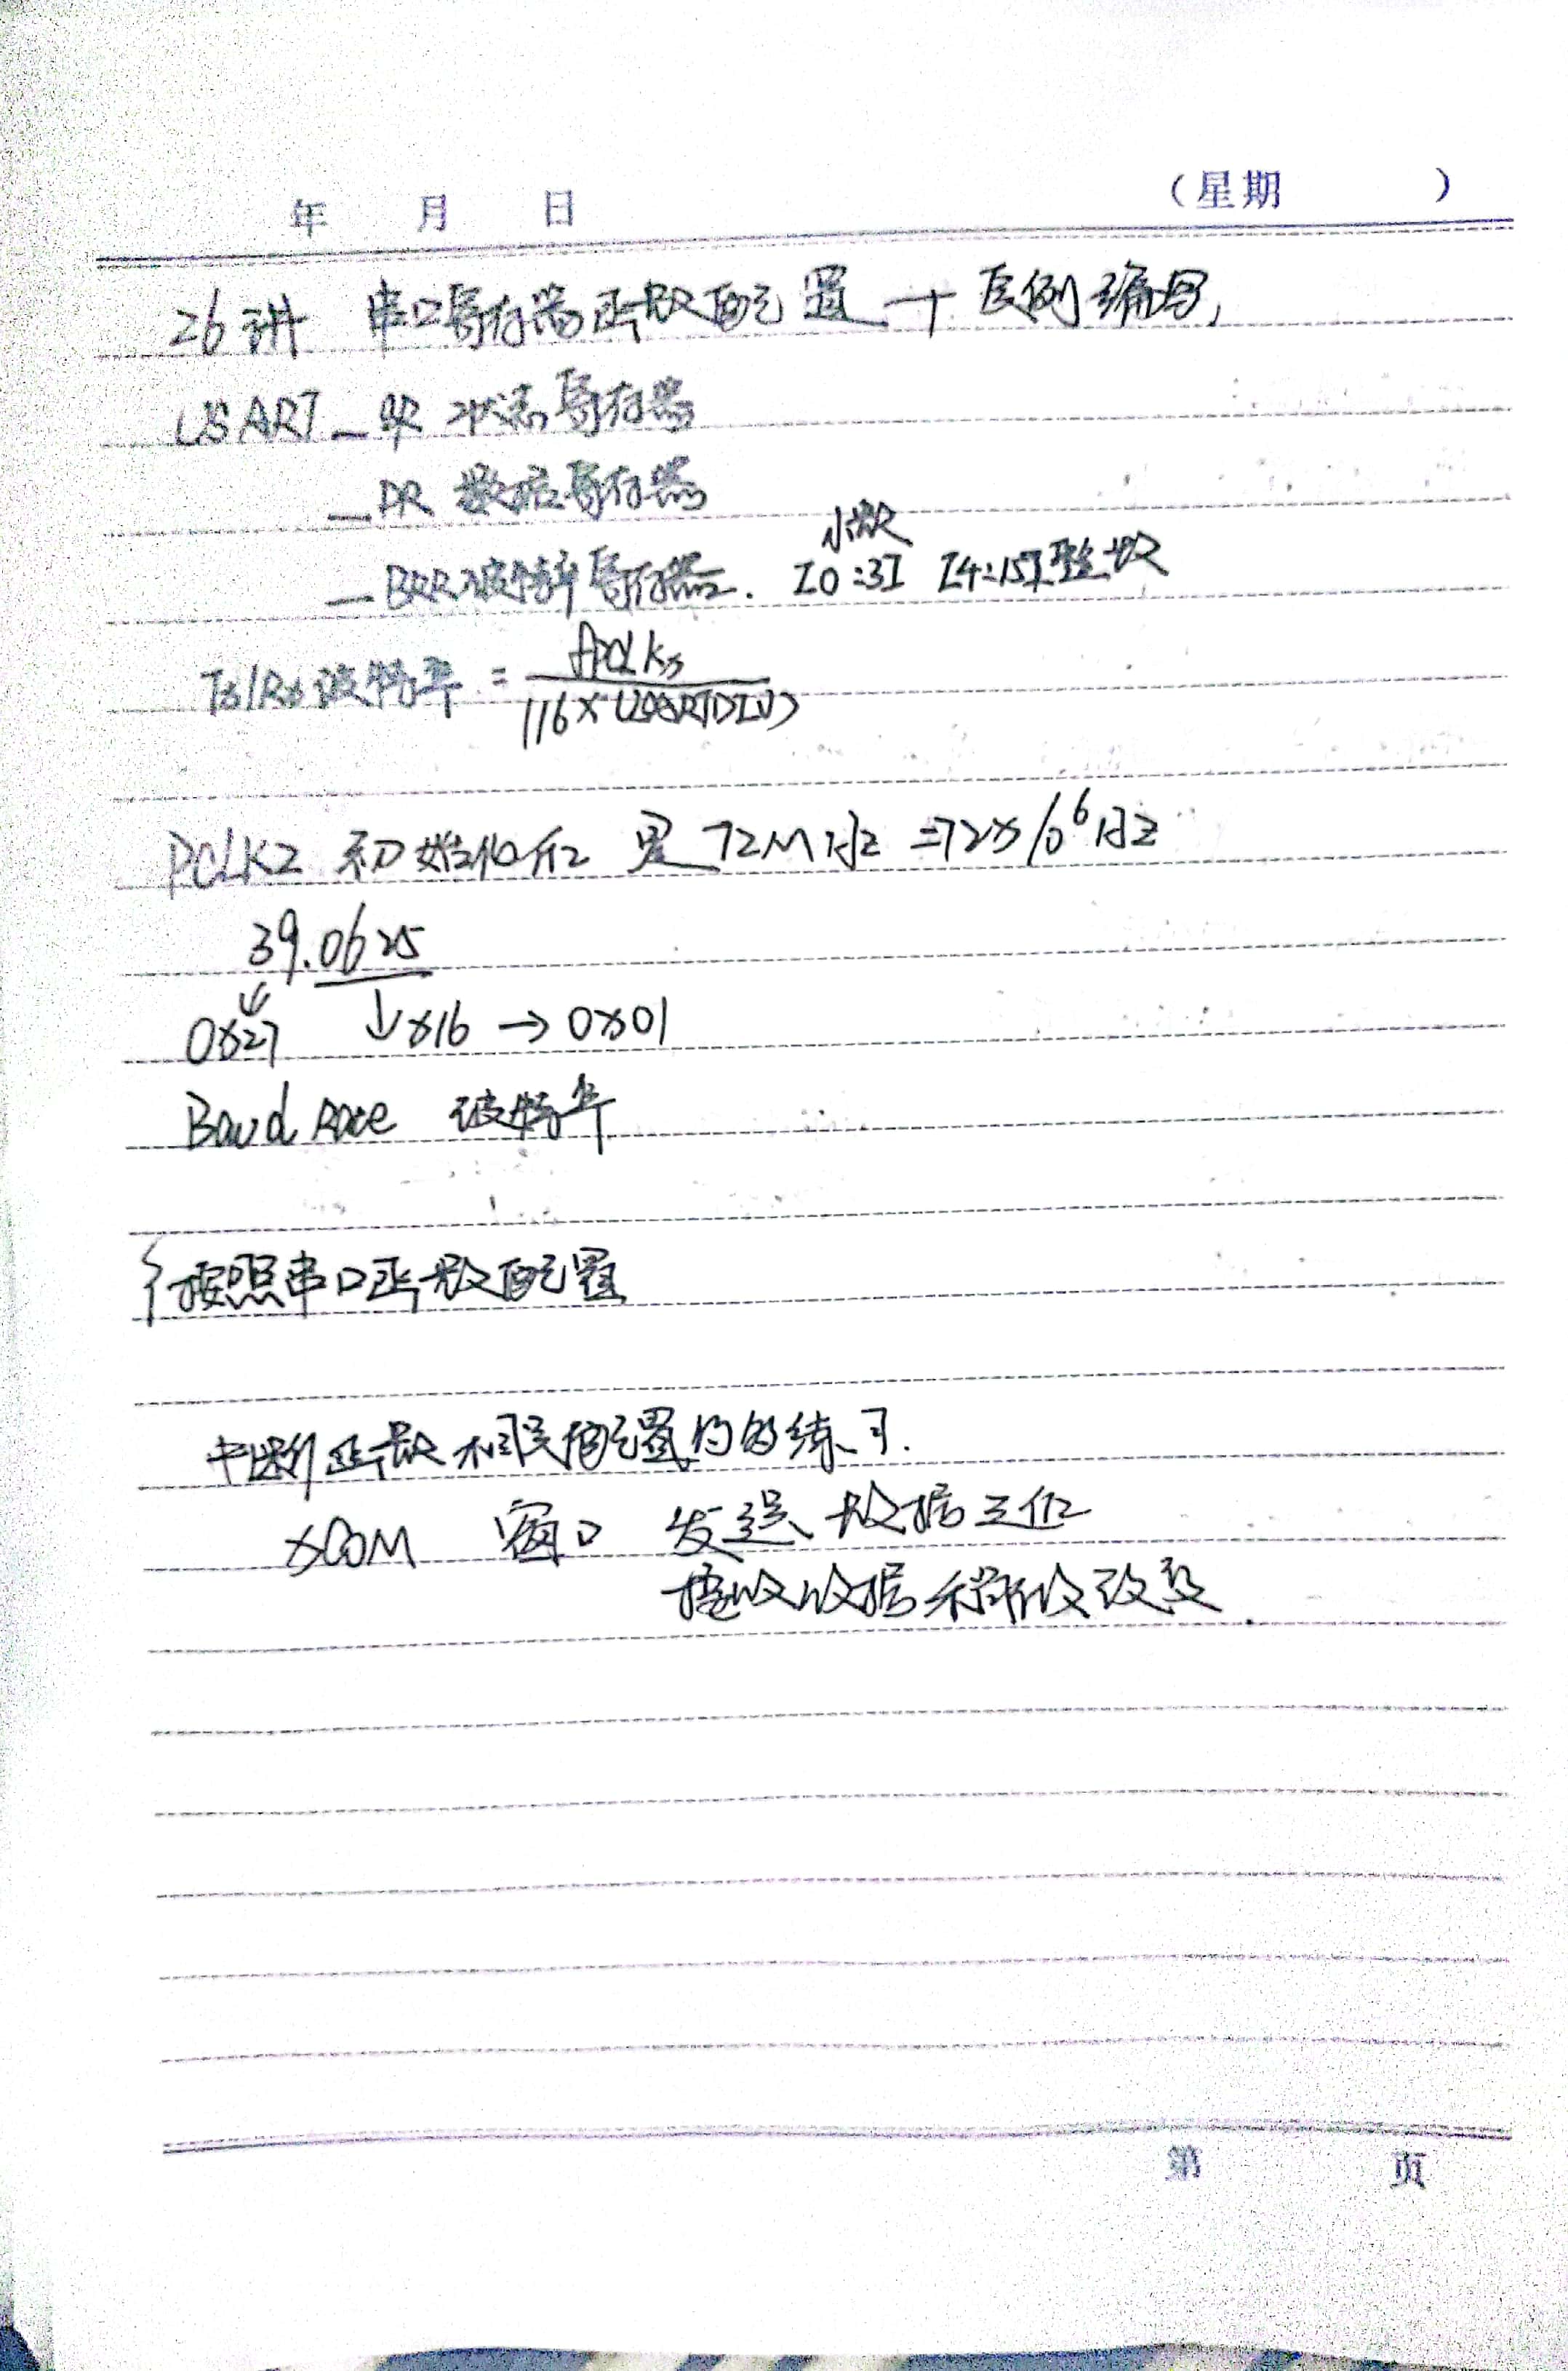 年 月 日 （星期 ）
26讲 串口寄存器函数配置 + 实例编写,
USART_SR 状态寄存器
_DR 数据寄存器
小数
_BRR波特率寄存器. [0:3] [4:15]整数
Tx/Rx波特率 = fPCLKx
(16×USARTDIV)
PCLK2 初始化 是 72MHz =72×10⁶Hz
39.0625
0x27 ↓×16 → 0x01
Baud Rate 波特率
{按照串口函数配置
中断函数相关配置的的练习.
XCOM 窗口 发送数据三位
接收数据 改变.
第 页